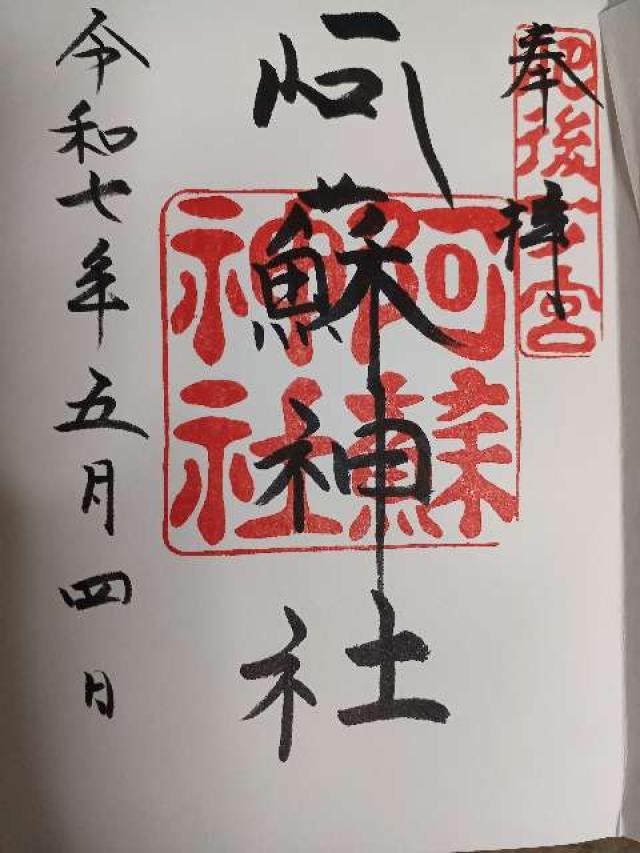 奉拝
肥後一宮
阿蘇神社
阿蘇
神社
令和七年五月四日